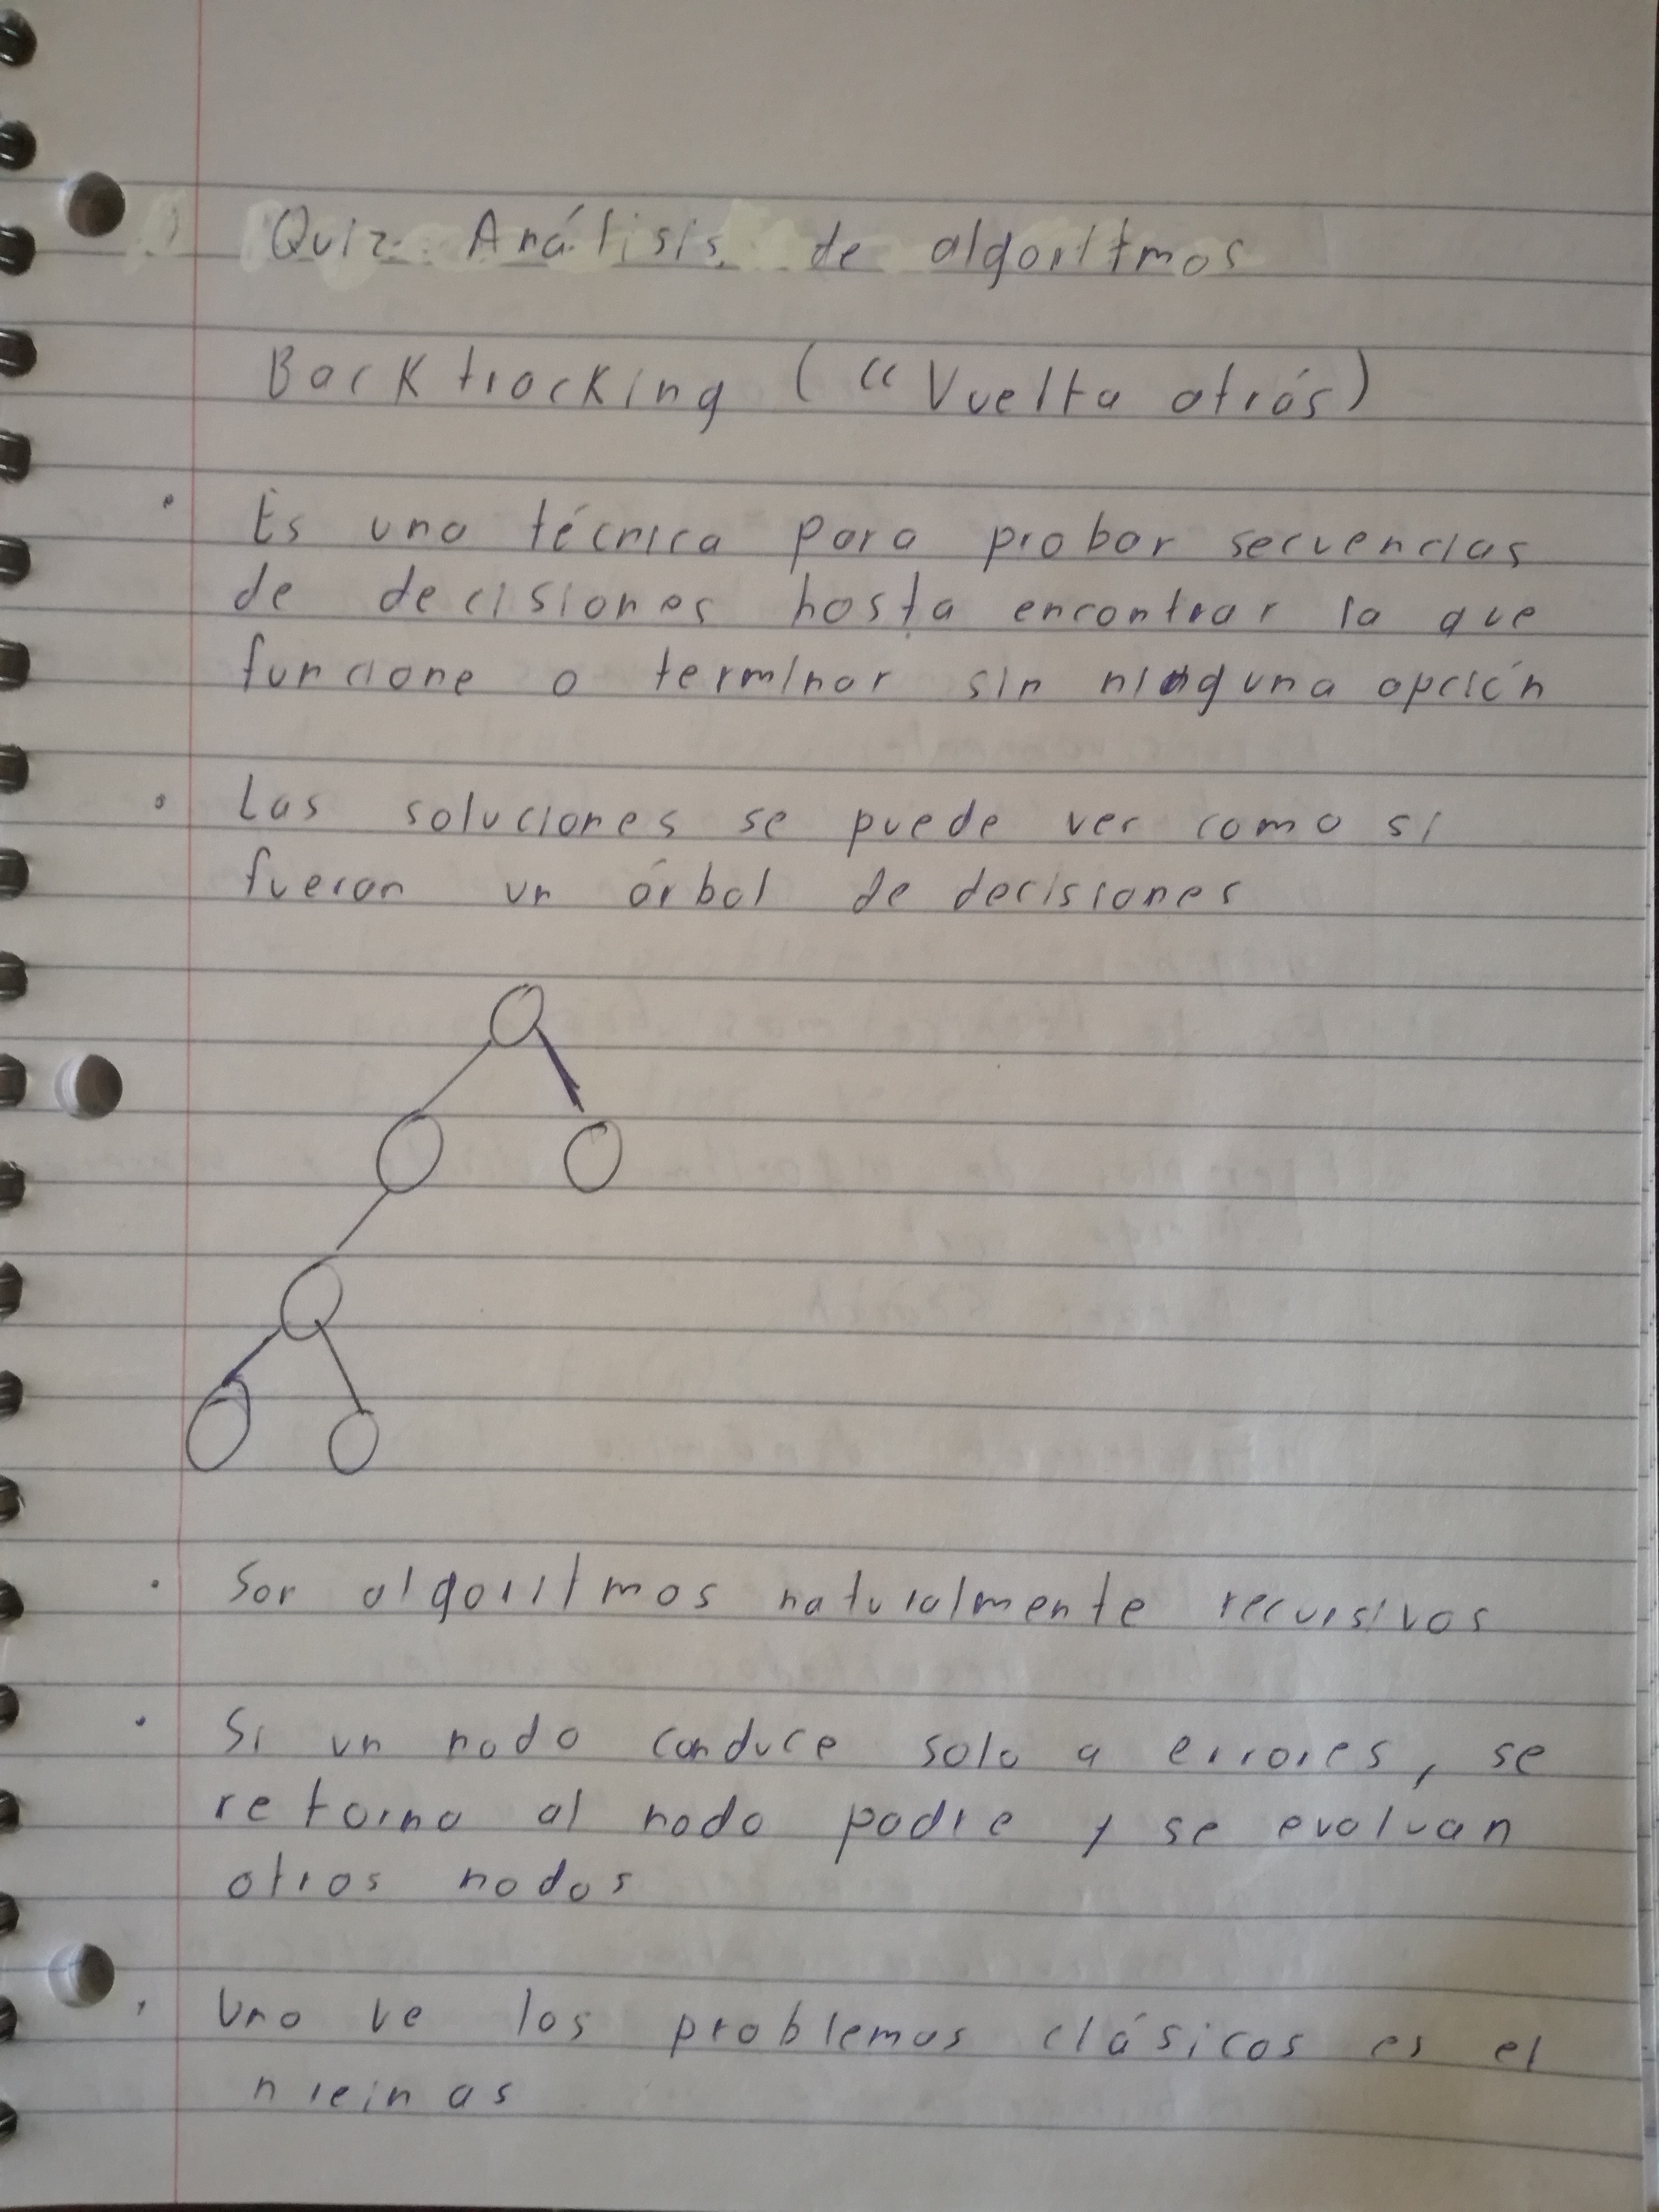 Quiz: Análisis de algoritmos
Backtracking ( “ Vuelta atrás)
• Es una técnica para probar secuencias
de decisiones hasta encontrar la que
funcione o terminar sin ninguna opción
• Las soluciones se puede ver como si
fueran un árbol de decisiones
• Son algoritmos naturalmente recursivos
• Si un nodo conduce solo a errores, se
retorna al nodo padre y se evaluan
otros nodos
• Uno ve los problemas clásicos es el
n reinas